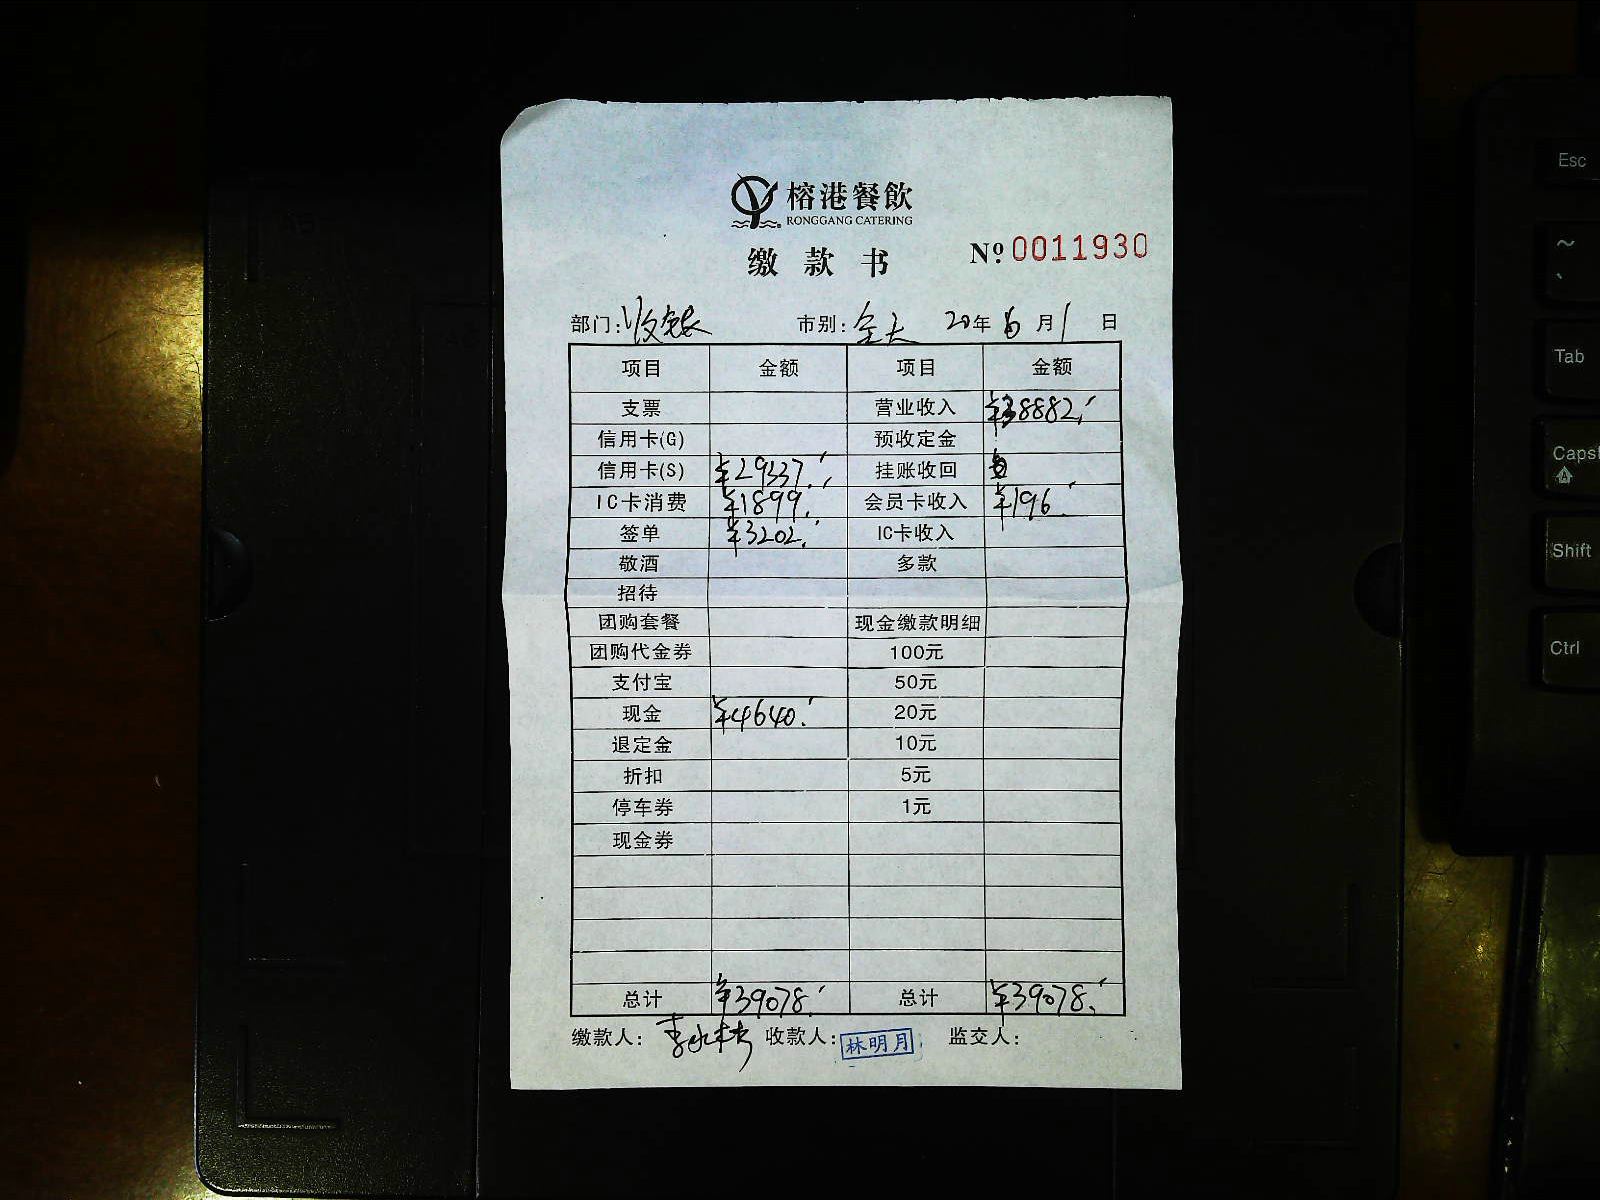 榕港餐飲
RONGGANG CATERING
缴款书 Nº 0011930
部门: 收银 市别: 全天 20年 6月 1日
项目 金额 项目 金额
支票 营业收入 ¥38882.
信用卡(G) 预收定金
信用卡(S) ¥29337. 挂账收回
IC卡消费 ¥1899. 会员卡收入 ¥196.
签单 ¥3202. IC卡收入
敬酒 多款
招待
团购套餐 现金缴款明细
团购代金券 100元
支付宝 50元
现金 ¥4640. 20元
退定金 10元
折扣 5元
停车券 1元
现金券
总计 ¥39078. 总计 ¥39078.
缴款人: 收款人: 林明月 监交人:
Esc
~
`
Tab
Caps
Shift
Ctrl